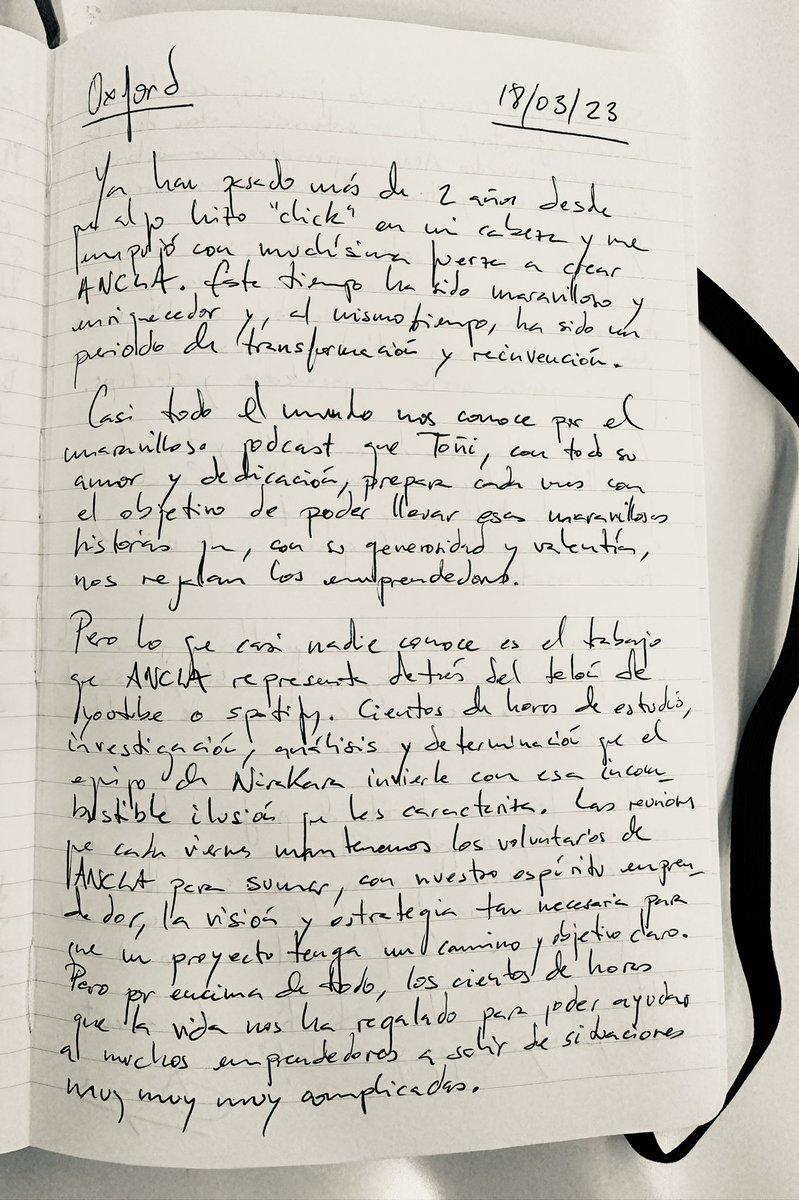 Oxford
18/03/23
Ya han pasado más de 2 años desde
que algo hizo "click" en mi cabeza y me
empujó con muchísima fuerza a crear
ANCLA. Este tiempo ha sido maravilloso y
enriquecedor y, al mismo tiempo, ha sido un
periodo de transformación y reinvención.
Casi todo el mundo nos conoce por el
maravilloso podcast que Toñi, con todo su
amor y dedicación, prepara cada mes con
el objetivo de poder llevar esas maravillosas
historias que, con su generosidad y valentía,
nos regalan los emprendedores.
Pero lo que casi nadie conoce es el trabajo
que ANCLA representa detrás del telón de
youtube o spotify. Cientos de horas de estudio,
investigación, análisis y determinación que el
equipo de Nirakara invierte con esa incom-
bustible ilusión que les caracteriza. Las reuniones
que cada viernes mantenemos los voluntarios de
ANCLA para sumar, con nuestro espíritu empren-
dedor, la visión y estrategia tan necesaria para
que un proyecto tenga un camino y objetivo claro.
Pero por encima de todo, los cientos de horas
que la vida nos ha regalado para poder ayudar
a muchos emprendedores a salir de situaciones
muy muy muy complicadas.